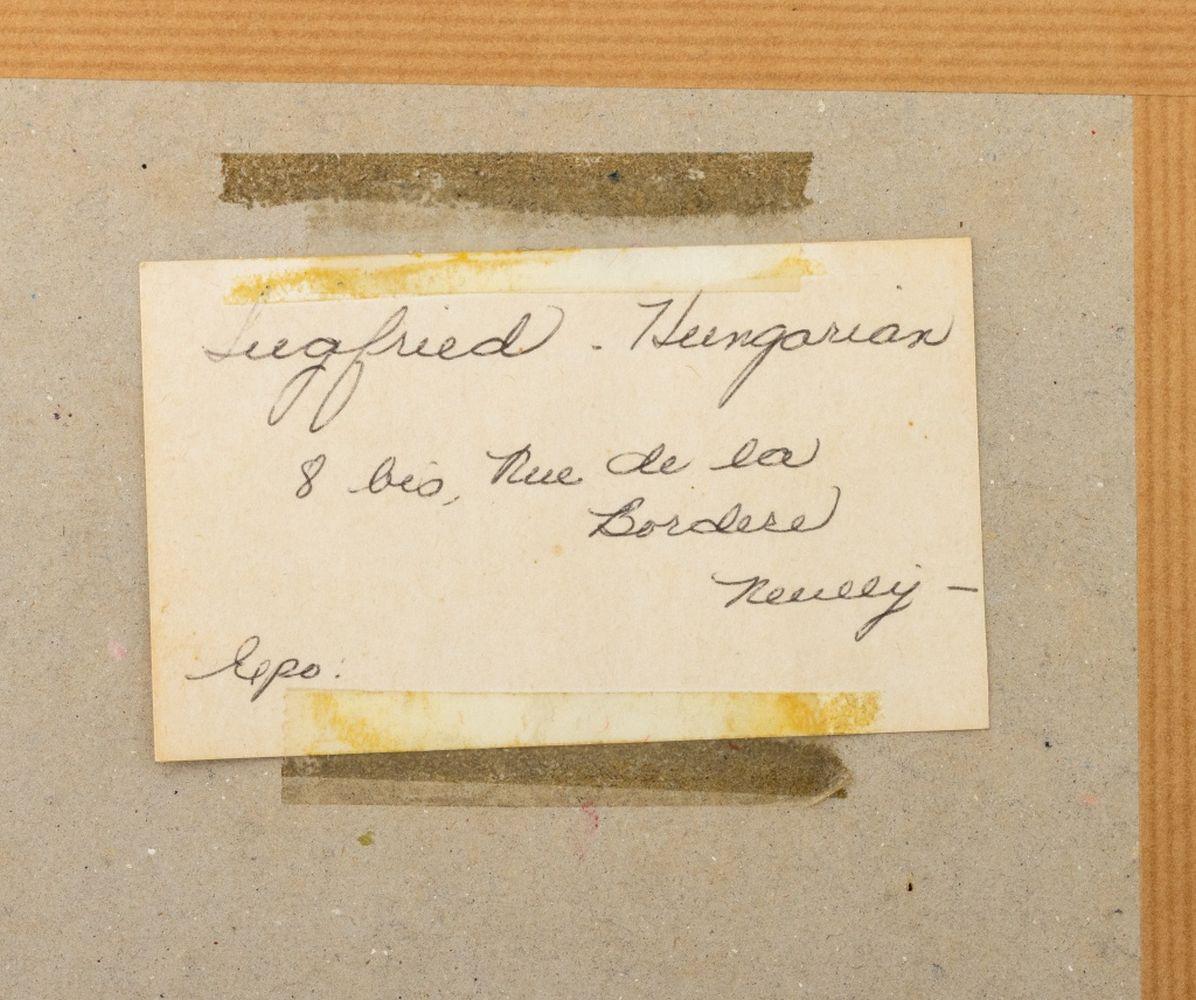 Siegfried . Hungarian
8 bis, Rue de la
Bordere
Neuilly –
Expo: